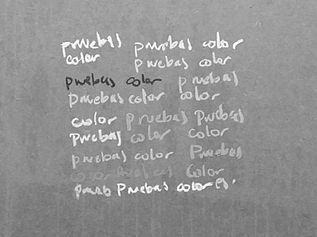 pruebas pruebas color
color pruebas color
pruebas color pruebas
pruebas color color
color pruebas pruebas
pruebas color color
pruebas color Pruebas
color pruebas color
prueb Pruebas colores.